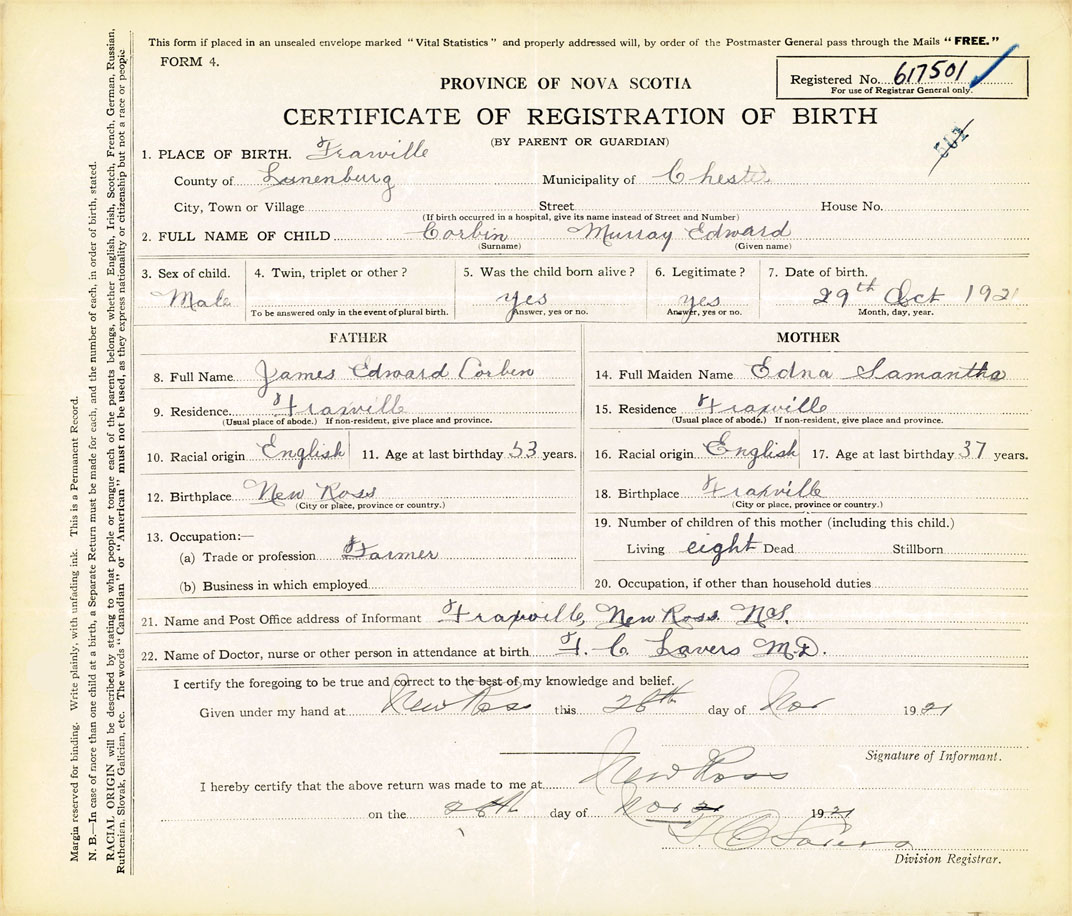 This form if placed in an unsealed envelope marked "Vital Statistics" and properly addressed will, by order of the Postmaster General pass through the Mails "FREE."
FORM 4.
Registered No. 617501
For use of Registrar General only.
PROVINCE OF NOVA SCOTIA
CERTIFICATE OF REGISTRATION OF BIRTH
(BY PARENT OR GUARDIAN)
1. PLACE OF BIRTH. Fraxville
County of Lunenburg Municipality of Chester
City, Town or Village Street House No.
(If birth occurred in a hospital, give its name instead of Street and Number)
2. FULL NAME OF CHILD Corbin Murray Edward
(Surname) (Given name)
3. Sex of child. 4. Twin, triplet or other? 5. Was the child born alive? 6. Legitimate? 7. Date of birth.
Male yes yes 29th Oct 1921
To be answered only in the event of plural birth. Answer, yes or no. Answer, yes or no. Month, day, year.
FATHER MOTHER
8. Full Name James Edward Corbin 14. Full Maiden Name Edna Samantha
9. Residence Fraxville 15. Residence Fraxville
(Usual place of abode.) If non-resident, give place and province. (Usual place of abode.) If non-resident, give place and province.
10. Racial origin English 11. Age at last birthday 53 years. 16. Racial origin English 17. Age at last birthday 37 years.
12. Birthplace New Ross 18. Birthplace Fraxville
(City or place, province or country.) (City or place, province or country.)
13. Occupation:— 19. Number of children of this mother (including this child.)
(a) Trade or profession Farmer Living eight Dead Stillborn
(b) Business in which employed 20. Occupation, if other than household duties
21. Name and Post Office address of Informant Fraxville, New Ross. N.S.
22. Name of Doctor, nurse or other person in attendance at birth F. C. Lavers M.D.
I certify the foregoing to be true and correct to the best of my knowledge and belief.
Given under my hand at New Ross this 26th day of Nov 1921
Signature of Informant.
I hereby certify that the above return was made to me at New Ross
on the 26th day of Nov 1921
F. C. Lavers
Division Registrar.
Margin reserved for binding. Write plainly, with unfading ink. This is a Permanent Record.
N. B.—In case of more than one child at a birth, a Separate Return must be made for each, and the number of each, in order of birth, stated.
RACIAL ORIGIN will be described by stating to what people or tongue each of the parents belongs, whether English, Irish, Scotch, French, German, Russian,
Ruthenian, Slovak, Galician, etc. The words "Canadian" or "American" must not be used, as they express nationality or citizenship but not a race or people